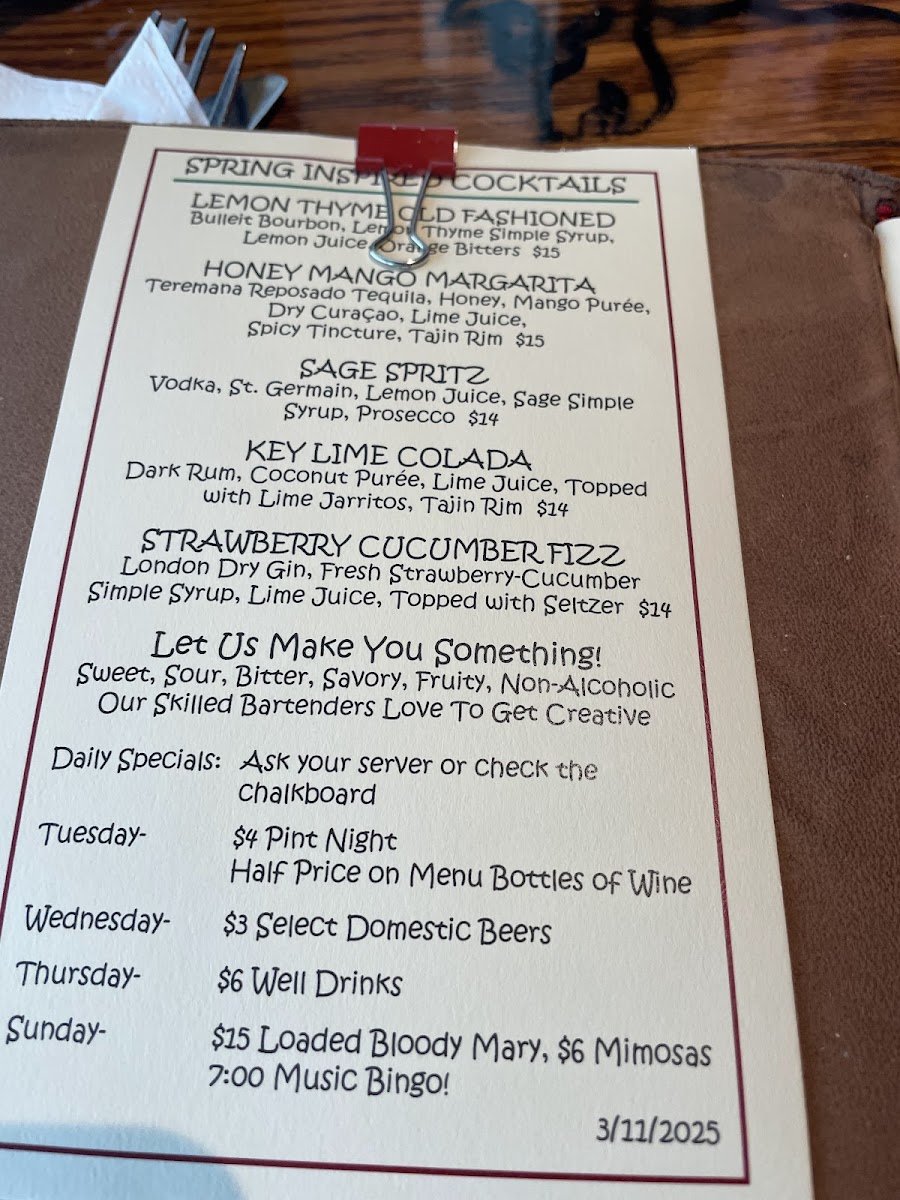 SPRING INSPIRED COCKTAILS
LEMON THYME OLD FASHIONED
Bulleit Bourbon, Lemon Thyme Simple Syrup,
Lemon Juice, Orange Bitters $15
HONEY MANGO MARGARITA
Teremana Reposado Tequila, Honey, Mango Purée,
Dry Curaçao, Lime Juice,
Spicy Tincture, Tajin Rim $15
SAGE SPRITZ
Vodka, St. Germain, Lemon Juice, Sage Simple
Syrup, Prosecco $14
KEY LIME COLADA
Dark Rum, Coconut Purée, Lime Juice, Topped
with Lime Jarritos, Tajin Rim $14
STRAWBERRY CUCUMBER FIZZ
London Dry Gin, Fresh Strawberry-Cucumber
Simple Syrup, Lime Juice, Topped with Seltzer $14
Let Us Make You Something!
Sweet, Sour, Bitter, Savory, Fruity, Non-Alcoholic
Our Skilled Bartenders Love To Get Creative
Daily Specials: Ask your server or check the
chalkboard
Tuesday- $4 Pint Night
Half Price on Menu Bottles of Wine
Wednesday- $3 Select Domestic Beers
Thursday- $6 Well Drinks
Sunday- $15 Loaded Bloody Mary, $6 Mimosas
7:00 Music Bingo!
3/11/2025